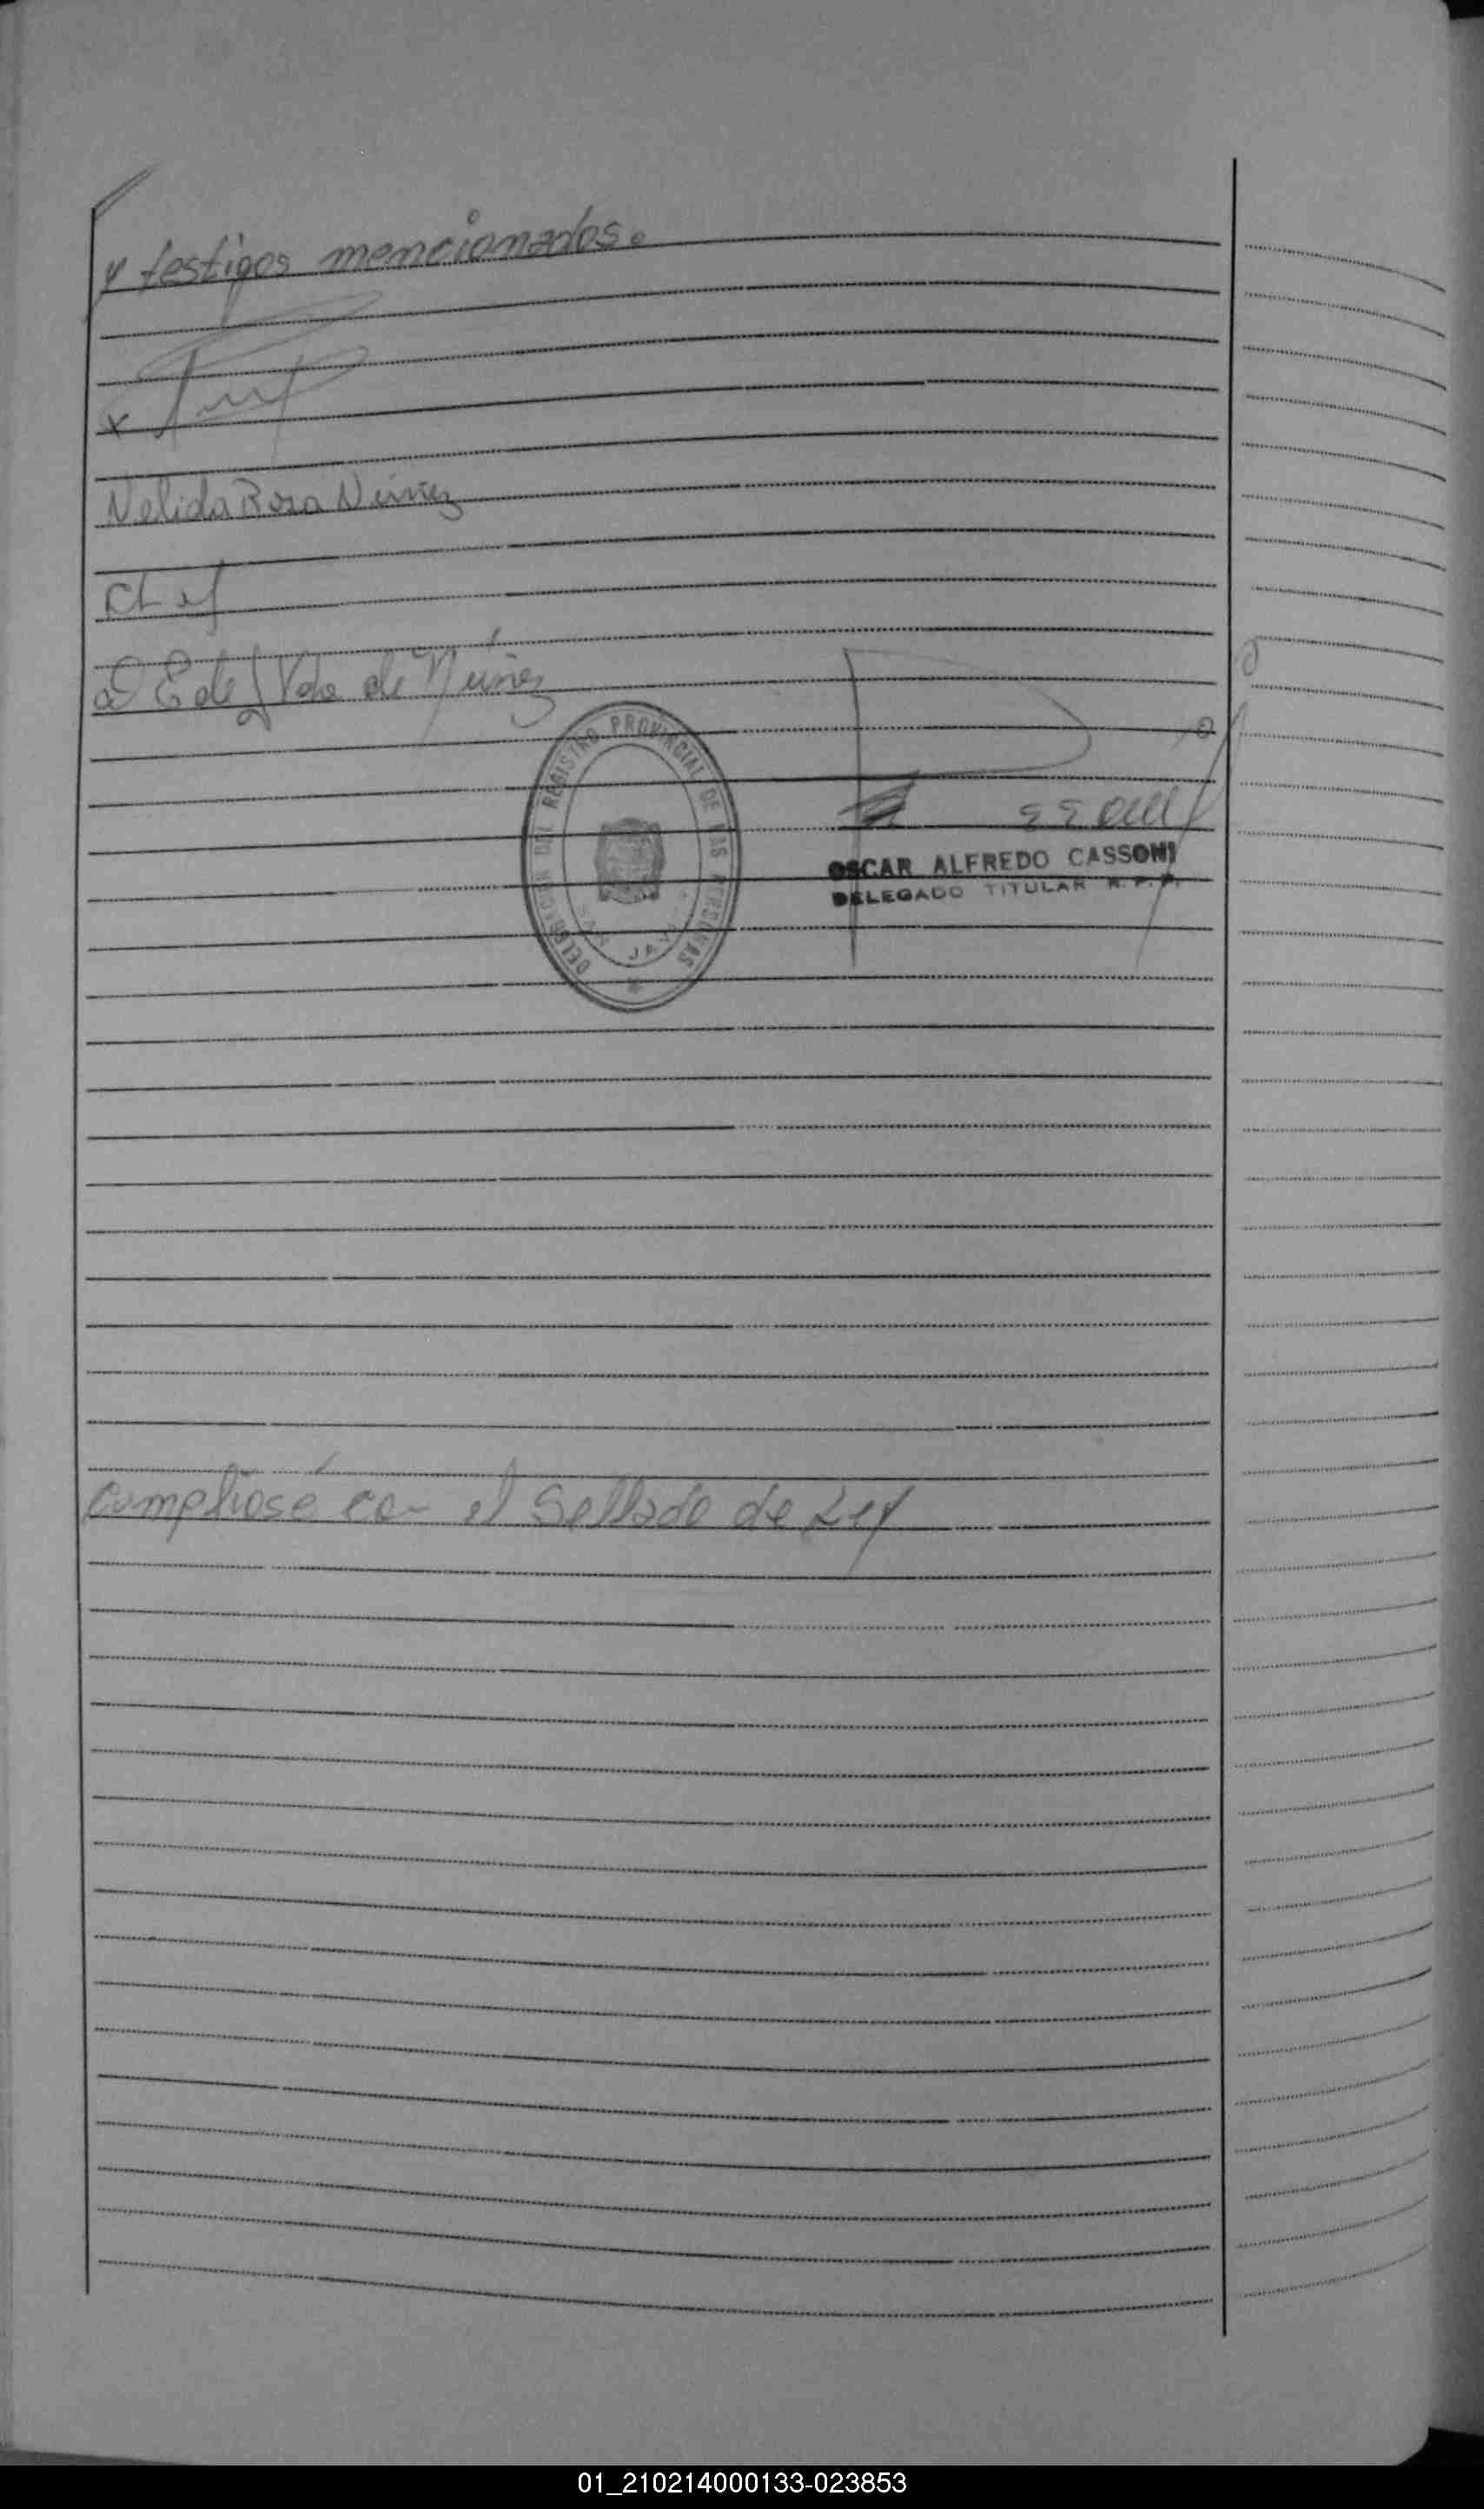 y testigos mencionados.
x
Nelida Rosa Núñez
de Núñez
DELEGACION DEL REGISTRO PROVINCIAL DE LAS PERSONAS
SAN JAVIER
OSCAR ALFREDO CASSONI
DELEGADO TITULAR R. P. P.
Cumpliose con el Sellado de Ley
01_210214000133-023853